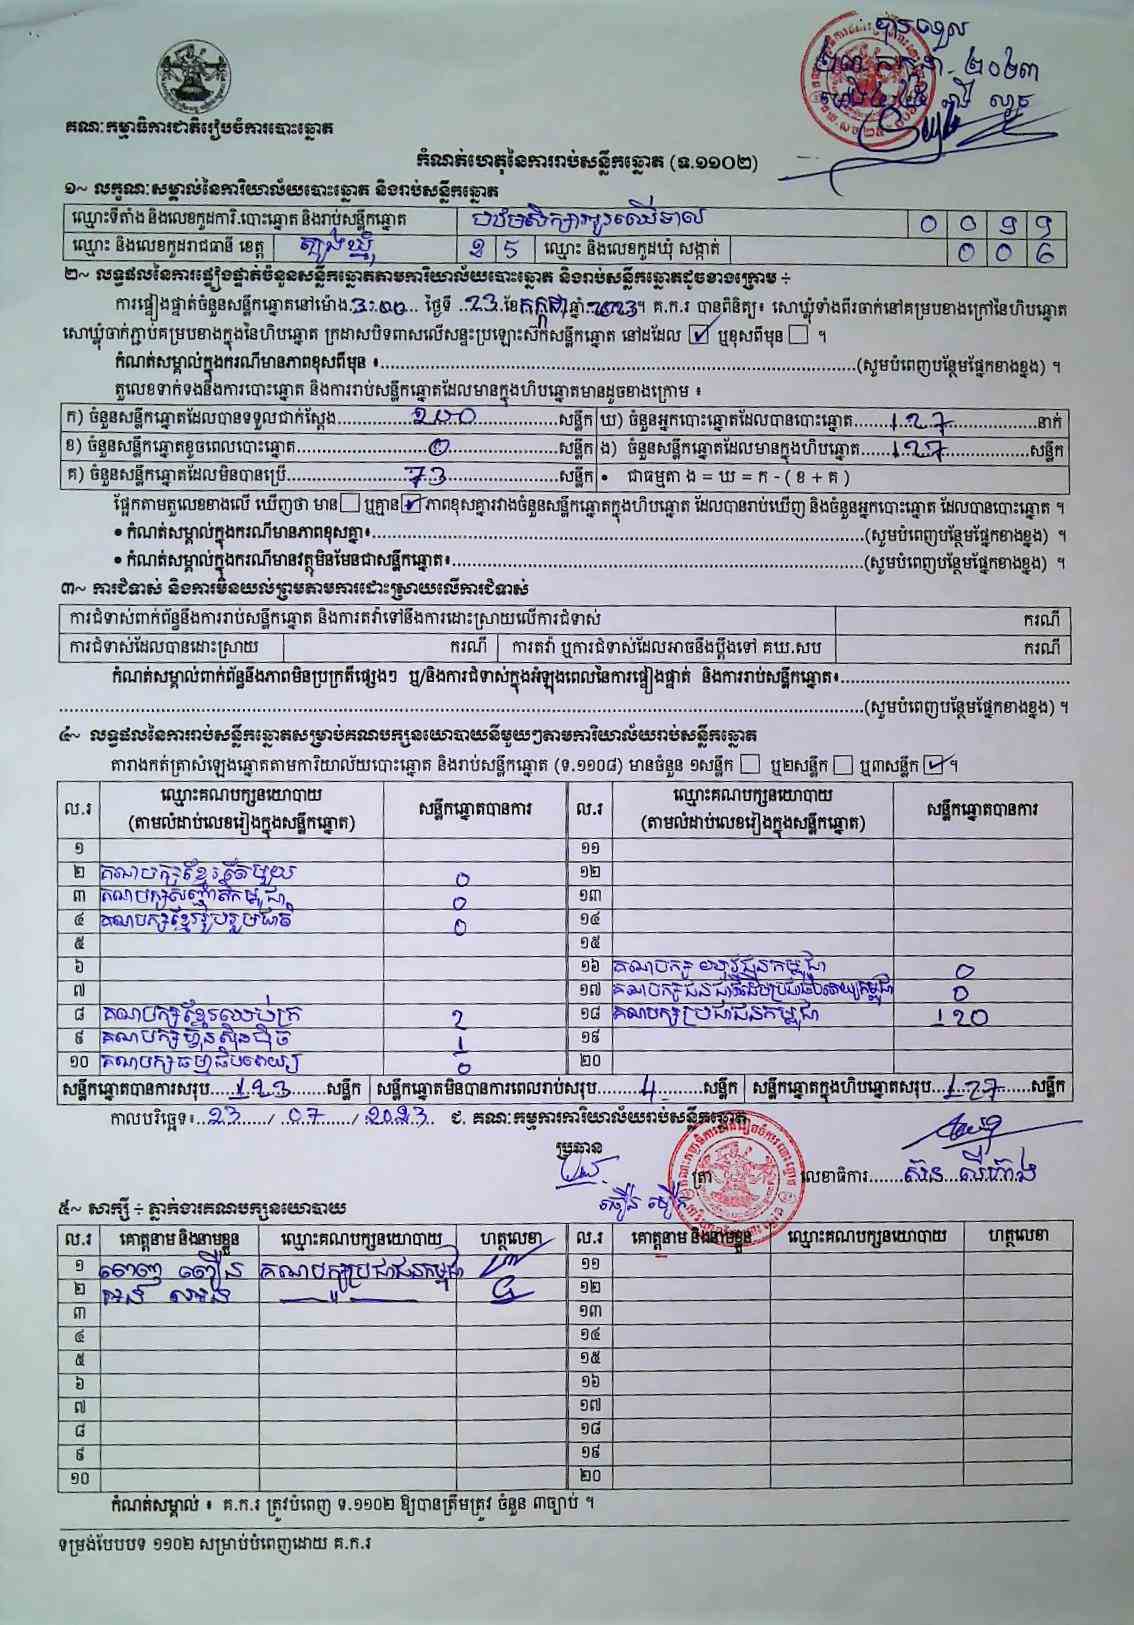 បានទទួល
២៣ កក្កដា ២០២៣
គណៈកម្មាធិការជាតិរៀបចំការបោះឆ្នោត
កំណត់ហេតុនៃការរាប់សន្លឹកឆ្នោត (ទ.១១០២)
១~ លក្ខណៈសម្គាល់នៃការិយាល័យបោះឆ្នោត និងរាប់សន្លឹកឆ្នោត
ឈ្មោះទីតាំង និងលេខកូដការិ.បោះឆ្នោត និងរាប់សន្លឹកឆ្នោត បឋមសិក្សា
ឈ្មោះ និងលេខកូដរាជធានី ខេត្ត ត្បូងឃ្មុំ ២ 5 ឈ្មោះ និងលេខកូដឃុំ សង្កាត់ 0 0 6
២~ លទ្ធផលនៃការផ្ទៀងផ្ទាត់ចំនួនសន្លឹកឆ្នោតតាមការិយាល័យបោះឆ្នោត និងរាប់សន្លឹកឆ្នោតដូចខាងក្រោម ÷
ការផ្ទៀងផ្ទាត់ចំនួនសន្លឹកឆ្នោតនៅម៉ោង 3:00 ថ្ងៃទី 23 ខែ កក្កដា ឆ្នាំ 2023។ គ.ក.រ បានពិនិត្យ៖ សោឃ្លុំទាំងពីរចាក់នៅគម្របខាងក្រៅនៃហិបឆ្នោត
សោឃ្លុំចាក់ភ្ជាប់គម្របខាងក្នុងនៃហិបឆ្នោត ក្រដាសបិទពាសលើសន្ទះប្រឡោះស៊កសន្លឹកឆ្នោត នៅដដែល ☑ ឬខុសពីមុន ☐ ។
កំណត់សម្គាល់ក្នុងករណីមានភាពខុសពីមុន ៖ (សូមបំពេញបន្ថែមផ្នែកខាងខ្នង) ។
តួលេខទាក់ទងនឹងការបោះឆ្នោត និងការរាប់សន្លឹកឆ្នោតដែលមានក្នុងហិបឆ្នោតមានដូចខាងក្រោម ៖
ក) ចំនួនសន្លឹកឆ្នោតដែលបានទទួលជាក់ស្តែង 200 សន្លឹក ឃ) ចំនួនអ្នកបោះឆ្នោតដែលបានបោះឆ្នោត 127 នាក់
ខ) ចំនួនសន្លឹកឆ្នោតខូចពេលបោះឆ្នោត 0 សន្លឹក ង) ចំនួនសន្លឹកឆ្នោតដែលមានក្នុងហិបឆ្នោត 127 សន្លឹក
គ) ចំនួនសន្លឹកឆ្នោតដែលមិនបានប្រើ 73 សន្លឹក • ជាធម្មតា ង = ឃ = ក - ( ខ + គ )
ផ្អែកតាមតួលេខខាងលើ ឃើញថា មាន ☐ ឬគ្មាន ☑ ភាពខុសគ្នារវាងចំនួនសន្លឹកឆ្នោតក្នុងហិបឆ្នោត ដែលបានរាប់ឃើញ និងចំនួនអ្នកបោះឆ្នោត ដែលបានបោះឆ្នោត ។
• កំណត់សម្គាល់ក្នុងករណីមានភាពខុសគ្នា៖ (សូមបំពេញបន្ថែមផ្នែកខាងខ្នង) ។
• កំណត់សម្គាល់ក្នុងករណីមានវត្ថុមិនមែនជាសន្លឹកឆ្នោត៖ (សូមបំពេញបន្ថែមផ្នែកខាងខ្នង) ។
៣~ ការជំទាស់ និងការមិនយល់ព្រមតាមការដោះស្រាយលើការជំទាស់
ការជំទាស់ពាក់ព័ន្ធនឹងការរាប់សន្លឹកឆ្នោត និងការតវ៉ាទៅនឹងការដោះស្រាយលើការជំទាស់ ករណី
ការជំទាស់ដែលបានដោះស្រាយ ករណី ការតវ៉ា ឬការជំទាស់ដែលអាចនឹងប្តឹងទៅ គឃ.សប ករណី
កំណត់សម្គាល់ពាក់ព័ន្ធនឹងភាពមិនប្រក្រតីផ្សេងៗ ឬ/និងការជំទាស់ក្នុងអំឡុងពេលនៃការផ្ទៀងផ្ទាត់ និងការរាប់សន្លឹកឆ្នោត៖
(សូមបំពេញបន្ថែមផ្នែកខាងខ្នង) ។
៤~ លទ្ធផលនៃការរាប់សន្លឹកឆ្នោតសម្រាប់គណបក្សនយោបាយនីមួយៗតាមការិយាល័យរាប់សន្លឹកឆ្នោត
តារាងកត់ត្រាសំឡេងឆ្នោតតាមការិយាល័យបោះឆ្នោត និងរាប់សន្លឹកឆ្នោត (ទ.១១០៨) មានចំនួន ១សន្លឹក ☐ ឬ២សន្លឹក ☐ ឬ៣សន្លឹក ☑ ។
ល.រ ឈ្មោះគណបក្សនយោបាយ (តាមលំដាប់លេខរៀងក្នុងសន្លឹកឆ្នោត) សន្លឹកឆ្នោតបានការ ល.រ ឈ្មោះគណបក្សនយោបាយ (តាមលំដាប់លេខរៀងក្នុងសន្លឹកឆ្នោត) សន្លឹកឆ្នោតបានការ
១ ១១
២ គណបក្សខ្មែរតែមួយ 0 ១២
៣ គណបក្សសញ្ជាតិកម្ពុជា 0 ១៣
៤ គណបក្សខ្មែររួបរួមជាតិ 0 ១៤
៥ ១៥
៦ ១៦ គណបក្ស យុវជនកម្ពុជា 0
៧ ១៧ គណបក្សជនជាតិដើមប្រជាធិបតេយ្យកម្ពុជា 0
៨ គណបក្សខ្មែរឈប់ក្រ 2 ១៨ គណបក្សប្រជាជនកម្ពុជា 120
៩ គណបក្សហ្វ៊ុនស៊ិនប៉ិច 1 ១៩
១០ គណបក្សធម្មាធិបតេយ្យ 0 ២០
សន្លឹកឆ្នោតបានការសរុប 123 សន្លឹក សន្លឹកឆ្នោតមិនបានការពេលរាប់សរុប 4 សន្លឹក សន្លឹកឆ្នោតក្នុងហិបឆ្នោតសរុប 127 សន្លឹក
កាលបរិច្ឆេទ៖ 23 / 07 / 2023 ជ. គណៈកម្មការការិយាល័យរាប់សន្លឹកឆ្នោត
ប្រធាន
ត្រា លេខាធិការ
៥~ សាក្សី ÷ ភ្នាក់ងារគណបក្សនយោបាយ
ល.រ គោត្តនាម និងនាមខ្លួន ឈ្មោះគណបក្សនយោបាយ ហត្ថលេខា ល.រ គោត្តនាម និងនាមខ្លួន ឈ្មោះគណបក្សនយោបាយ ហត្ថលេខា
១ គណបក្សប្រជាជនកម្ពុជា ១១
២ ១២
៣ ១៣
៤ ១៤
៥ ១៥
៦ ១៦
៧ ១៧
៨ ១៨
៩ ១៩
១០ ២០
កំណត់សម្គាល់ ៖ គ.ក.រ ត្រូវបំពេញ ទ.១១០២ ឱ្យបានត្រឹមត្រូវ ចំនួន ៣ច្បាប់ ។
ទម្រង់បែបបទ ១១០២ សម្រាប់បំពេញដោយ គ.ក.រ